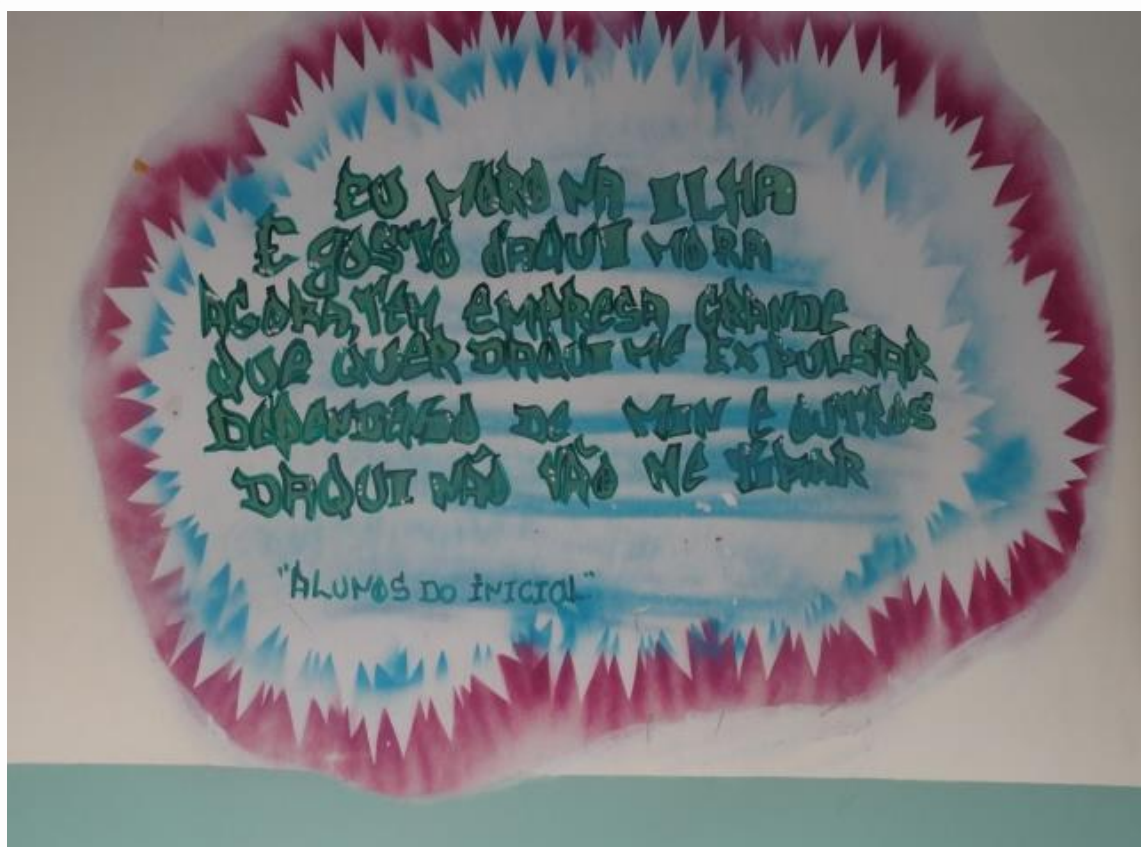 EU MORO NA ILHA
E gOSTO DAQUI MORA
AGORA, TEM EMPRESA GRANDE
QUE QUER DAQUI ME EXPULSAR
DEPENDENDO DE MIN E OUTROS
DAQUI NÃO VÃO ME TIRAR
"ALUNOS DO INICIAL"